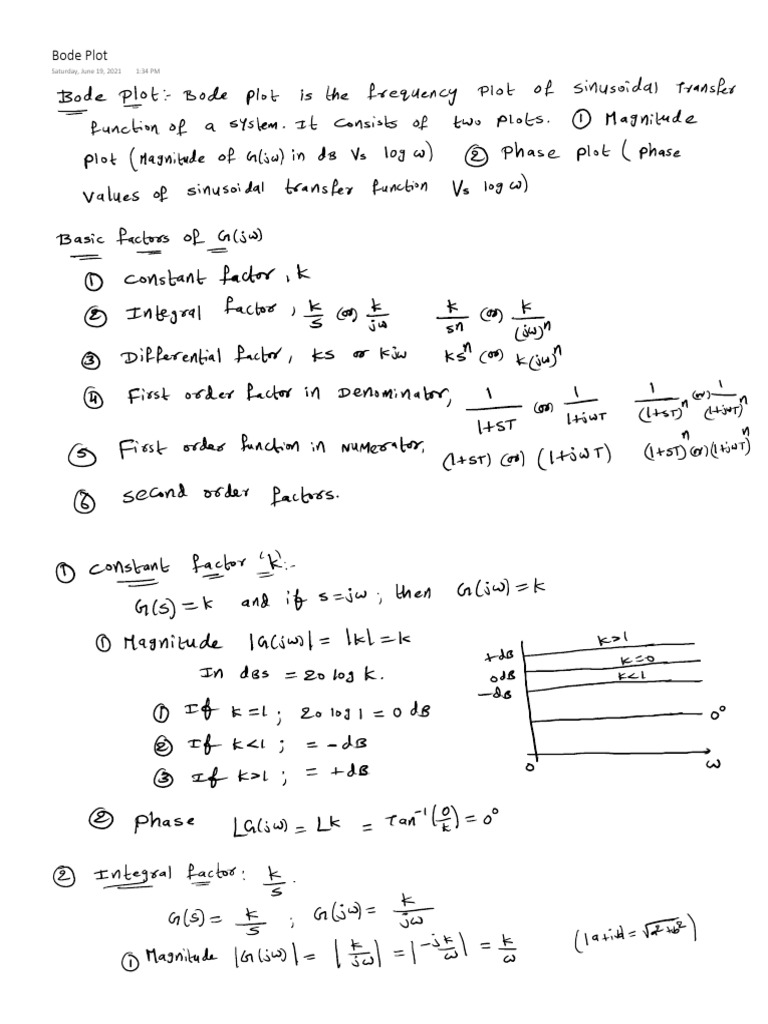 Bode Plot
Saturday, June 19, 2021 1:34 PM
Bode Plot:- Bode Plot is the frequency Plot of sinusoidal Transfer
function of a system. It consists of two plots. ① Magnitude
Plot (Magnitude of G(jω) in dB Vs log ω) ② Phase Plot ( Phase
values of sinusoidal transfer function Vs log ω)
Basic factors of G(jω)
① Constant factor, k
② Integral factor, k/s (or) k/jω k/sⁿ (or) k/(jω)ⁿ
③ Differential factor, ks or kjω ksⁿ (or) k(jω)ⁿ
④ First order factor in Denominator, 1/(1+sT) (or) 1/(1+jωT) 1/(1+sT)ⁿ (or) 1/(1+jωT)ⁿ
⑤ First order function in Numerator, (1+sT) (or) (1+jωT) (1+sT)ⁿ (or) (1+jωT)ⁿ
⑥ Second order factors.
① Constant factor 'k':-
G(s) = k and if s=jω ; then G(jω) = k
① Magnitude |G(jω)| = |k| = k
In dBs = 20 log k.
① If k=1 ; 20 log 1 = 0 dB
② If k<1 ; = -dB
③ If k>1 ; = +dB
+dB k>1
0dB k=0
-dB k<1
0°
0 ω
② Phase ∠G(jω) = ∠k = Tan⁻¹(0/k) = 0°
② Integral factor: k/s.
G(s) = k/s ; G(jω) = k/jω
① Magnitude |G(jω)| = |k/jω| = |-jk/ω| = k/ω (|a+ib| = √a²+b²)